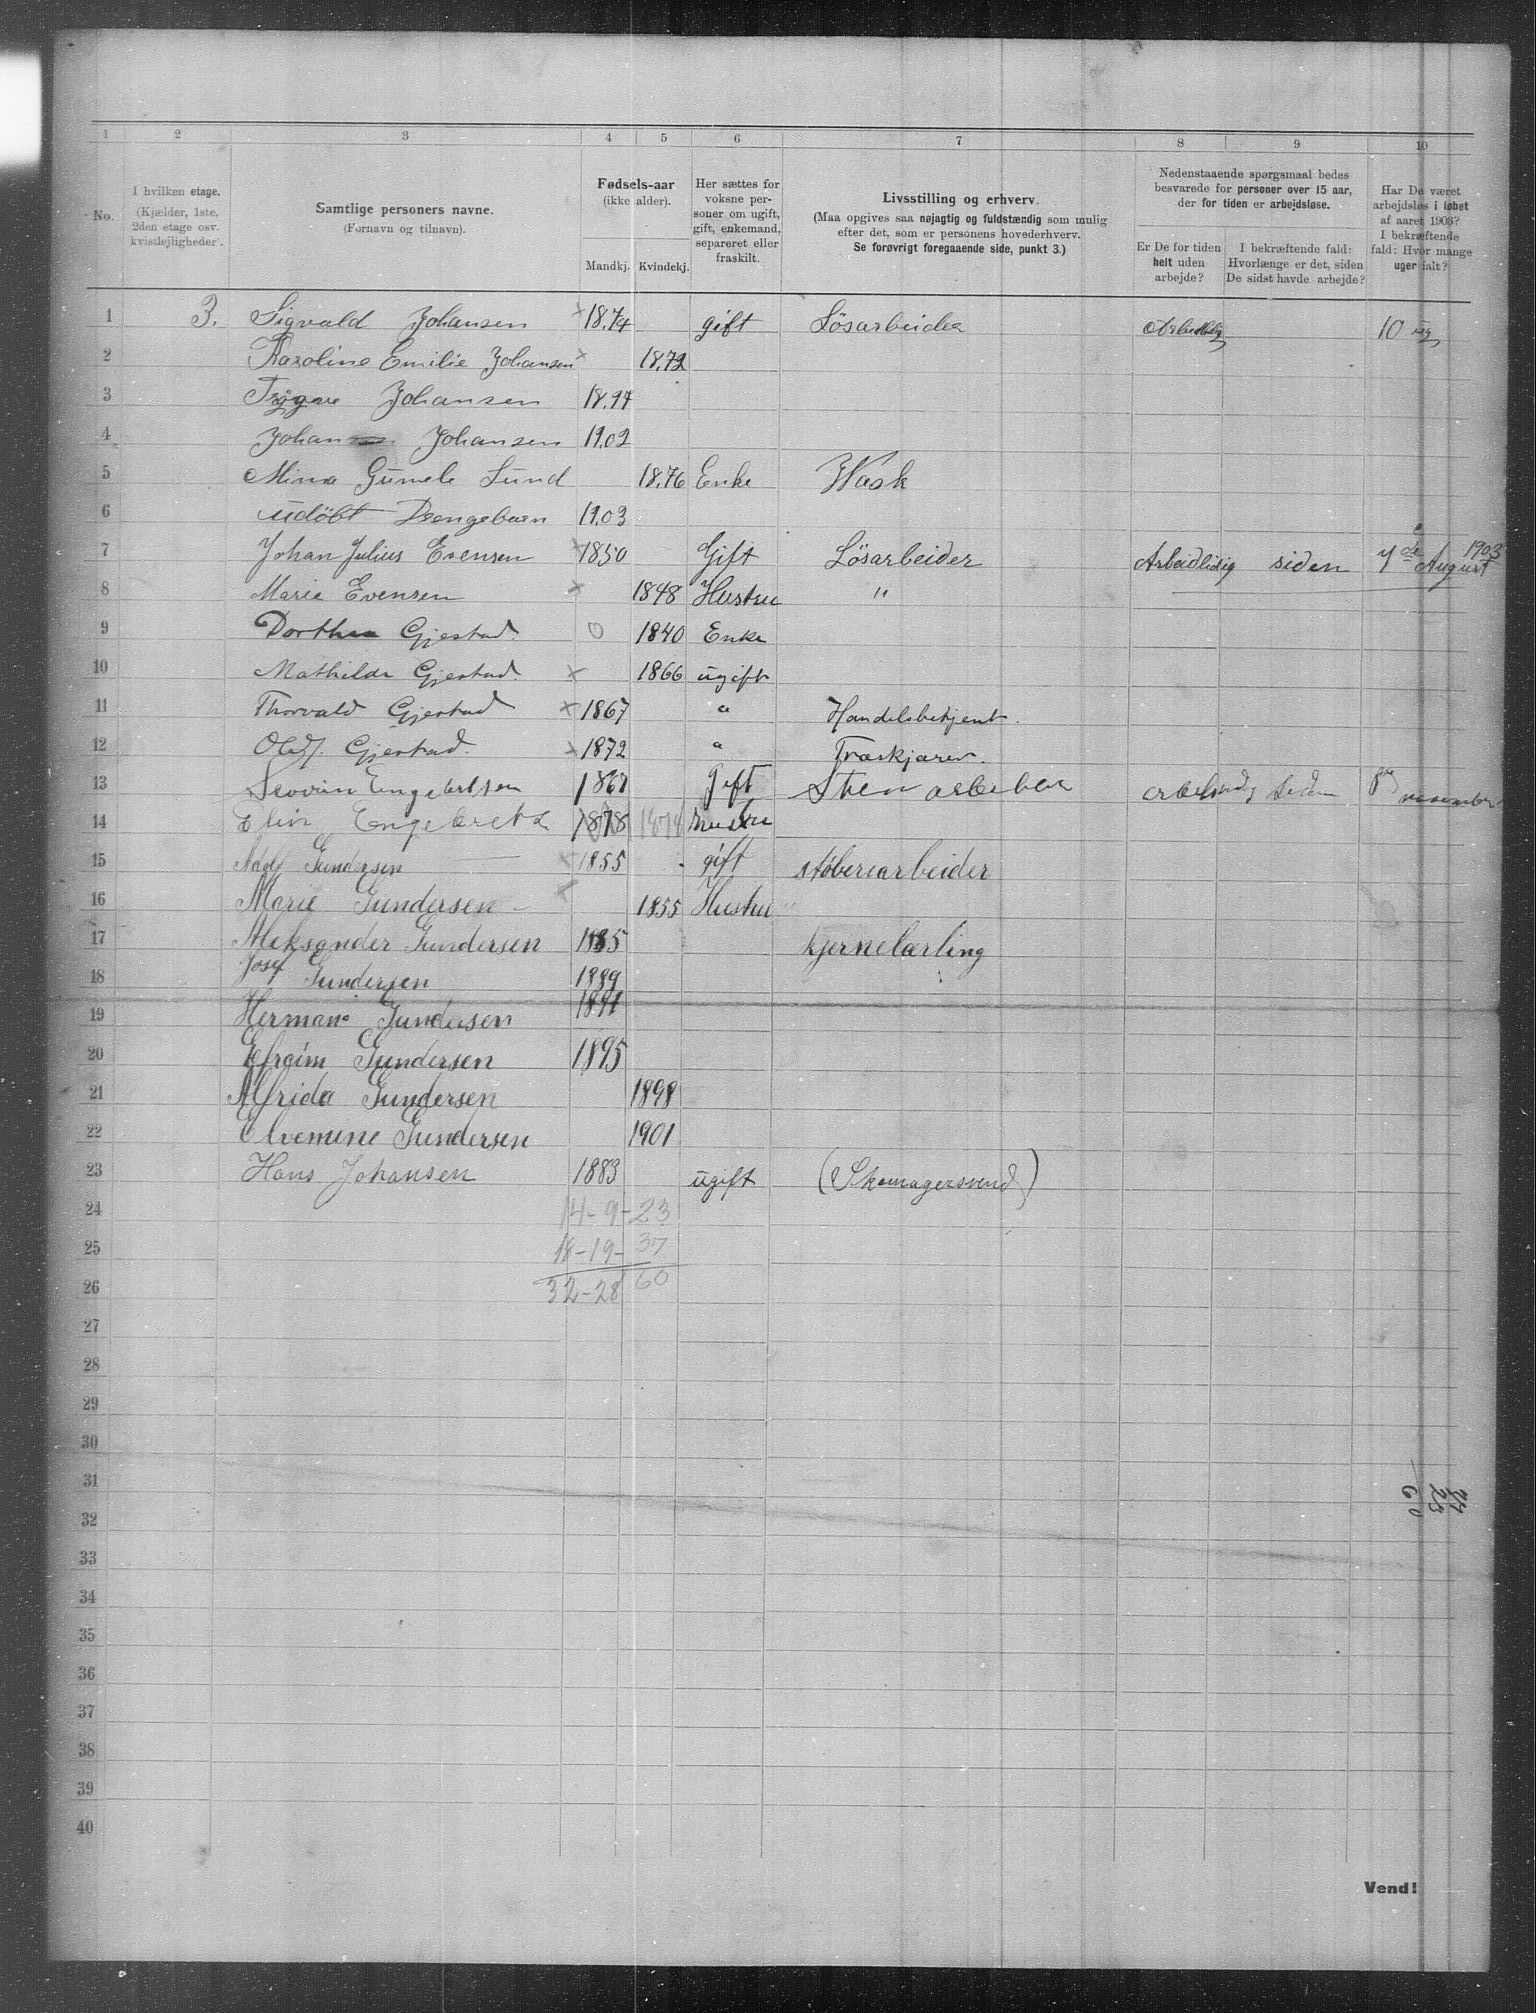 1 2 3 4 5 6 7 8 9 10
No.
I hvilken etage.
(Kjælder, 1ste,
2den etage osv.
kvistlejligheder).
Samtlige personers navne.
(Fornavn og tilnavn).
Fødsels-aar
(ikke alder).
Mandkj. Kvindekj.
Her sættes for
voksne per-
soner om ugift,
gift, enkemand,
separeret eller
fraskilt.
Livsstilling og erhverv.
(Maa opgives saa nøjagtig og fuldstændig som mulig
efter det, som er personens hovederhverv.
Se forøvrigt foregaaende side, punkt 3.)
Nedenstaaende spørgsmaal bedes
besvarede for personer over 15 aar,
der for tiden er arbejdsløse.
Er De for tiden
helt uden
arbejde?
I bekræftende fald:
Hvorlænge er det, siden
De sidst havde arbejde?
Har De været
arbejdsløs i løbet
af aaret 1903?
I bekræftende
fald: Hvor mange
uger ialt?
1 3. Sigvald Johansen × 18.74 gift Lösarbeider 10 ug
2 Karoline Emilie Johansen × 18.72
3 Trÿgve Johansen 18.97
4 Johan Johansen 19.02
5 Mina Gumele Lund 18.76 Enke Wask
6 udöbt Drengebarn 19.03
7 Johan Julius Evensen × 1850 Gift Lösarbeider Arbeidlisig siden 7de August 1903
8 Marie Evensen × 1848 Hustru "
9 Dorthea Gjestad. 0 1840 Enke
10 Mathilde Gjestad. × 1866 ugift
11 Thorvald Gjestad × 1867 " Handelsbetjent.
12 Olaf. Gjestad. × 1872 " Træskjærer.
13 Severin Engebretsen 1867 Gift Sten arbeider november
14 Elin Engebrets 1878 1878 hustru
15 Adolf Gundersen × 1855 gift støberiarbeider
16 Marie Gundersen × 1855 Hustru "
17 Aleksander Gundersen 1885 kjernelærling
18 Josef Gundersen 1889
19 Herman Gundersen 1891
20 Efraim Gundersen 1895
21 Alfrida Gundersen 1898
22 Elvemine Gundersen 1901
23 Hans Johansen 1883 ugift (Skomagersvend)
24 14-9-23
25 18-19-37
26 32-28 60
27
28
29
30
31
32
33
34
35
36
37
38
39
40
Vend!